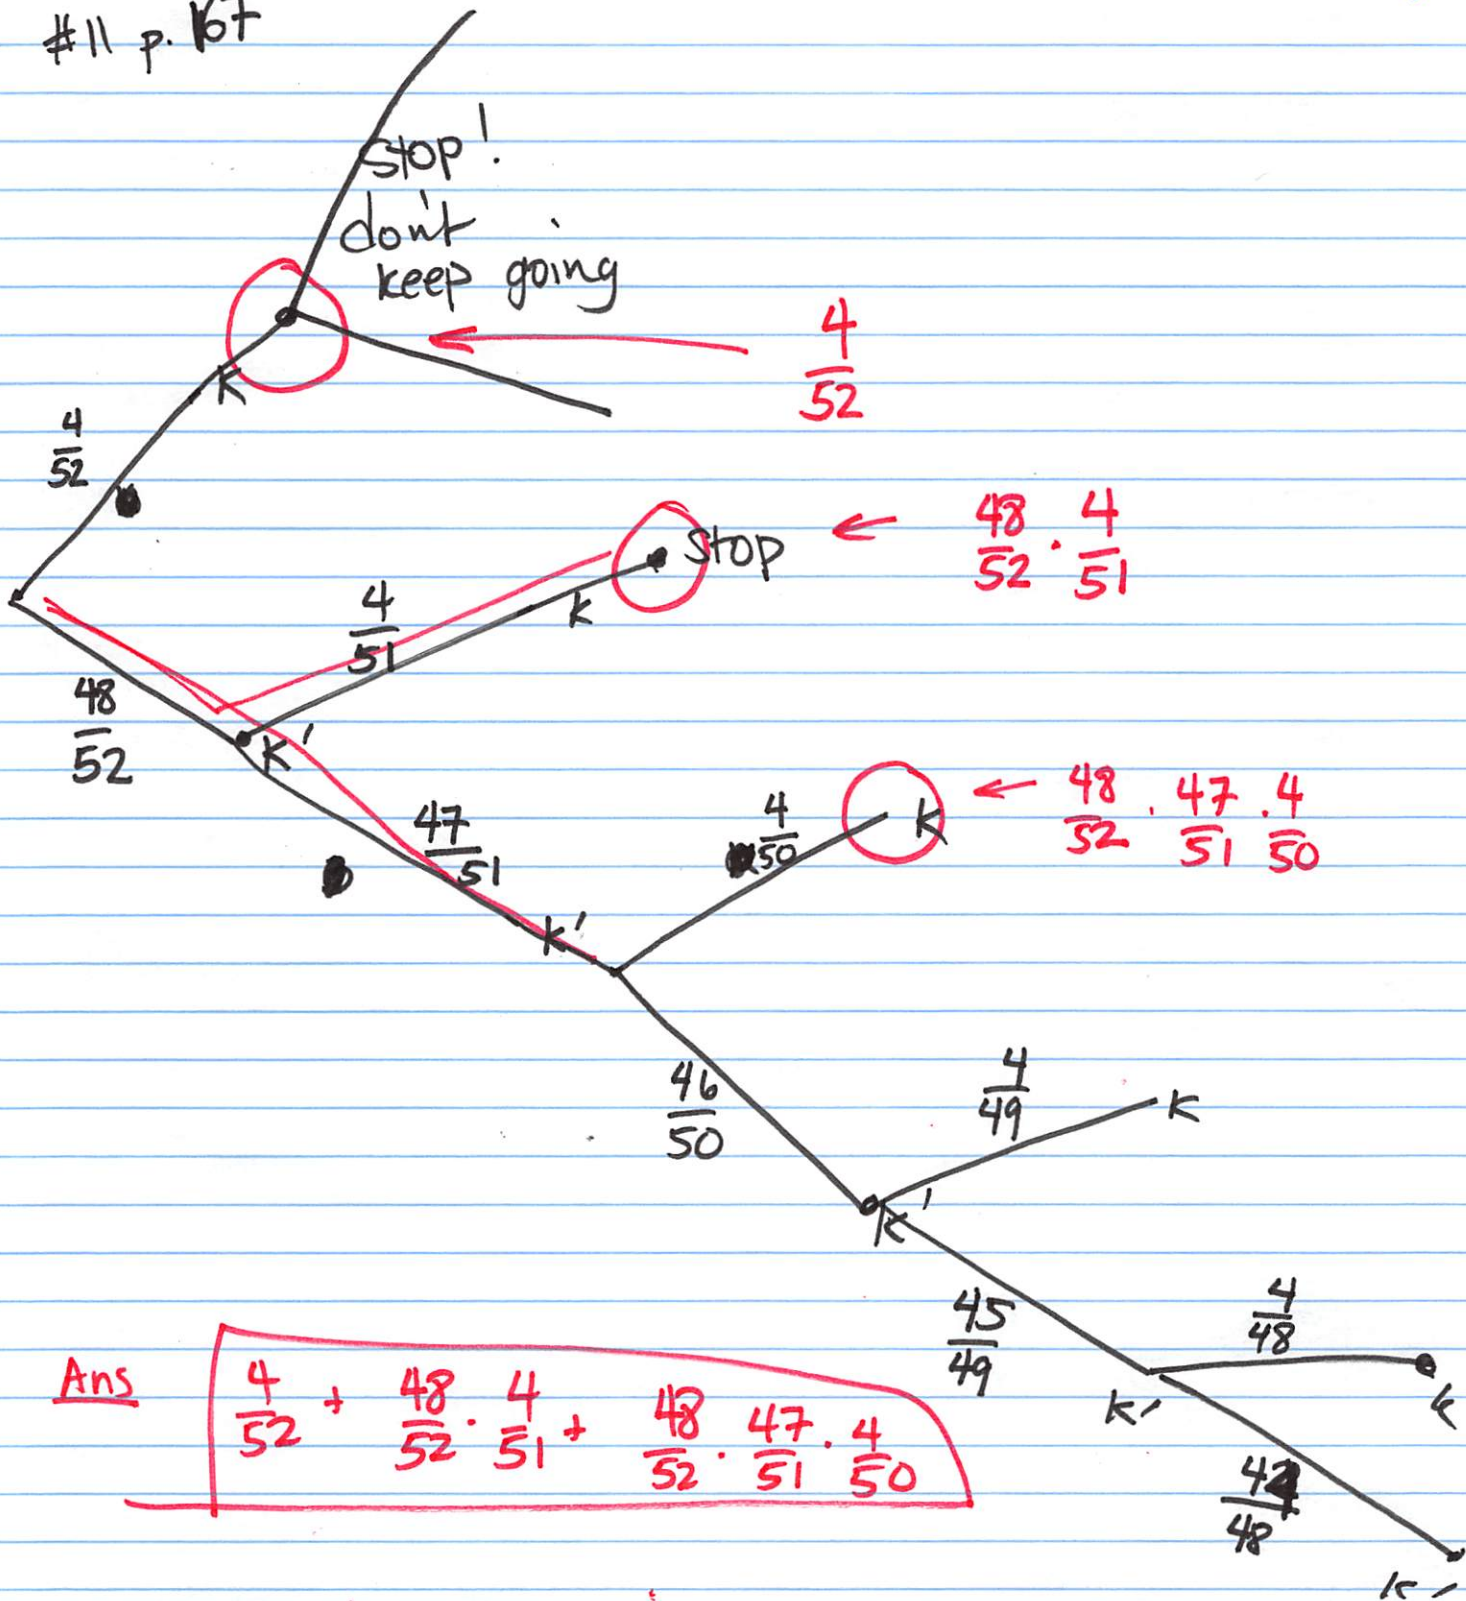 #11 p. 167
stop!
don't
keep going
4/52
K
4/52
Stop
48/52 · 4/51
4/51
k
48/52
K'
47/51
4/50
K
48/52 · 47/51 · 4/50
k'
46/50
4/49
K
K'
45/49
4/48
k'
k
Ans
4/52 + 48/52 · 4/51 + 48/52 · 47/51 · 4/50
44/48
k'